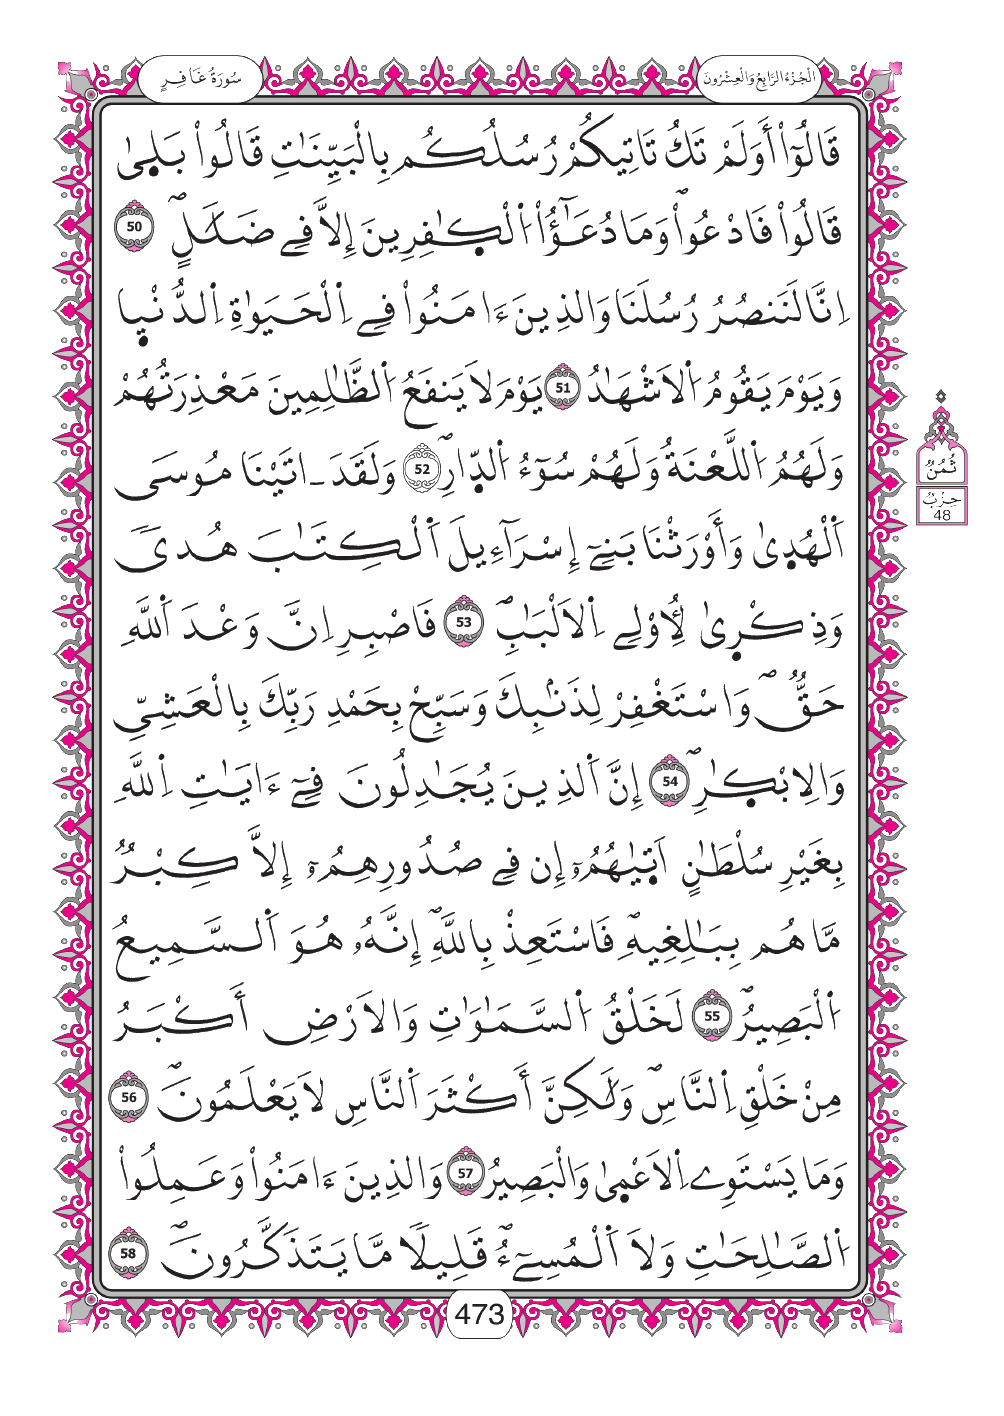 سُورَةُ غَافِرٍ
اَلْجُزْءُ الرَّابِعُ وَالْعِشْرُونَ
قَالُوٓاْ أَوَلَمْ تَكُ تَاتِيكُمْ رُسُلُكُم بِالْبَيِّنَٰتِ قَالُواْ بَل۪يٰ
قَالُواْ فَادْعُواْۖ وَمَا دُعَٰٓؤُاْ اُ۬لْكٰ۪فِرِينَ إِلَّا فِے ضَلَٰلٍۖ 50
اِنَّا لَنَنصُرُ رُسُلَنَا وَالذِينَ ءَامَنُواْ فِے اِ۬لْحَيَوٰةِ اِ۬لدُّنْي۪ا
وَيَوْمَ يَقُومُ اُ۬لَاشْهَٰدُ 51 يَوْمَ لَا يَنفَعُ اُ۬لظَّٰلِمِينَ مَعْذِرَتُهُمْ
وَلَهُمُ اُ۬للَّعْنَةُ وَلَهُمْ سُوٓءُ اُ۬لدّ۪ارِۖ 52 وَلَقَدَ اٰتَيْنَا مُوسَي
ثُمُنُ
حِزْبُ
48
اَ۬لْهُد۪يٰ وَأَوْرَثْنَا بَنِےٓ إِسْرَآءِيلَ اَ۬لْكِتَٰبَ هُديٗ
وَذِكْر۪يٰ لِأُوْلِے اِ۬لَالْبَٰبِۖ 53 فَاصْبِرِ اِنَّ وَعْدَ اَ۬للَّهِ
حَقّٞۖ وَاسْتَغْفِرْ لِذَنۢبِكَ وَسَبِّحْ بِحَمْدِ رَبِّكَ بِالْعَشِيِّ
وَالِابْكٰ۪رِۖ 54 إِنَّ اَ۬لذِينَ يُجَٰدِلُونَ فِےٓ ءَايَٰتِ اِ۬للَّهِ
بِغَيْرِ سُلْطَٰنٍ اَت۪يٰهُمُۥٓ إِن فِے صُدُورِهِمُۥٓ إِلَّا كِبْرٞ
مَّا هُم بِبَٰلِغِيهِۖ فَاسْتَعِذْ بِاللَّهِۖ إِنَّهُۥ هُوَ اَ۬لسَّمِيعُ
اُ۬لْبَصِيرُۖ 55 لَخَلْقُ اُ۬لسَّمَٰوَٰتِ وَالَارْضِ أَكْبَرُ
مِنْ خَلْقِ اِ۬لنَّاسِۖ وَلَٰكِنَّ أَكْثَرَ اَ۬لنَّاسِ لَا يَعْلَمُونَۖ 56
وَمَا يَسْتَوِے اِ۬لَاعْم۪يٰ وَالْبَصِيرُ 57 وَالذِينَ ءَامَنُواْ وَعَمِلُواْ
اُ۬لصَّٰلِحَٰتِ وَلَا اَ۬لْمُسِےٓءُۖ قَلِيلٗا مَّا يَتَذَكَّرُونَۖ 58
473